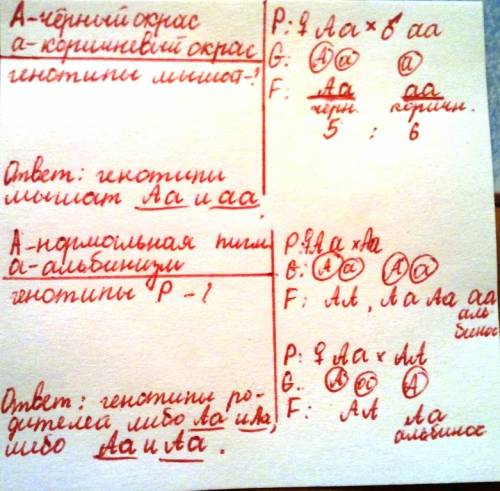 А-чёрный окрас
а-коричневый окрас
генотипы мышат-?
Ответ: генотипы
мышат Аа и аа.
P: ♀ Аа × ♂ аа
G: А а а
F: Аа аа
черн. коричн.
5 : 6
А-нормальная пигм
а-альбинизм
генотипы P -?
Ответ: генотипы ро-
дителей либо Аа и Аа,
либо Аа и Аа.
P: ♀Аа × Аа
G: А а А а
F: АА, Аа Аа аа
аль-
бинос
P: ♀ Аа × АА
G. А а А
F: АА Аа
альбинос